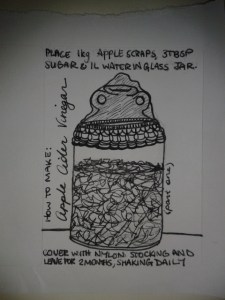 PLACE 1kg APPLE SCRAPS, 3TBSP
SUGAR & 1L WATER IN GLASS JAR
HOW TO MAKE:
Apple Cider Vinegar
(part one)
COVER WITH NYLON STOCKING AND
LEAVE FOR 2 MONTHS, SHAKING DAILY